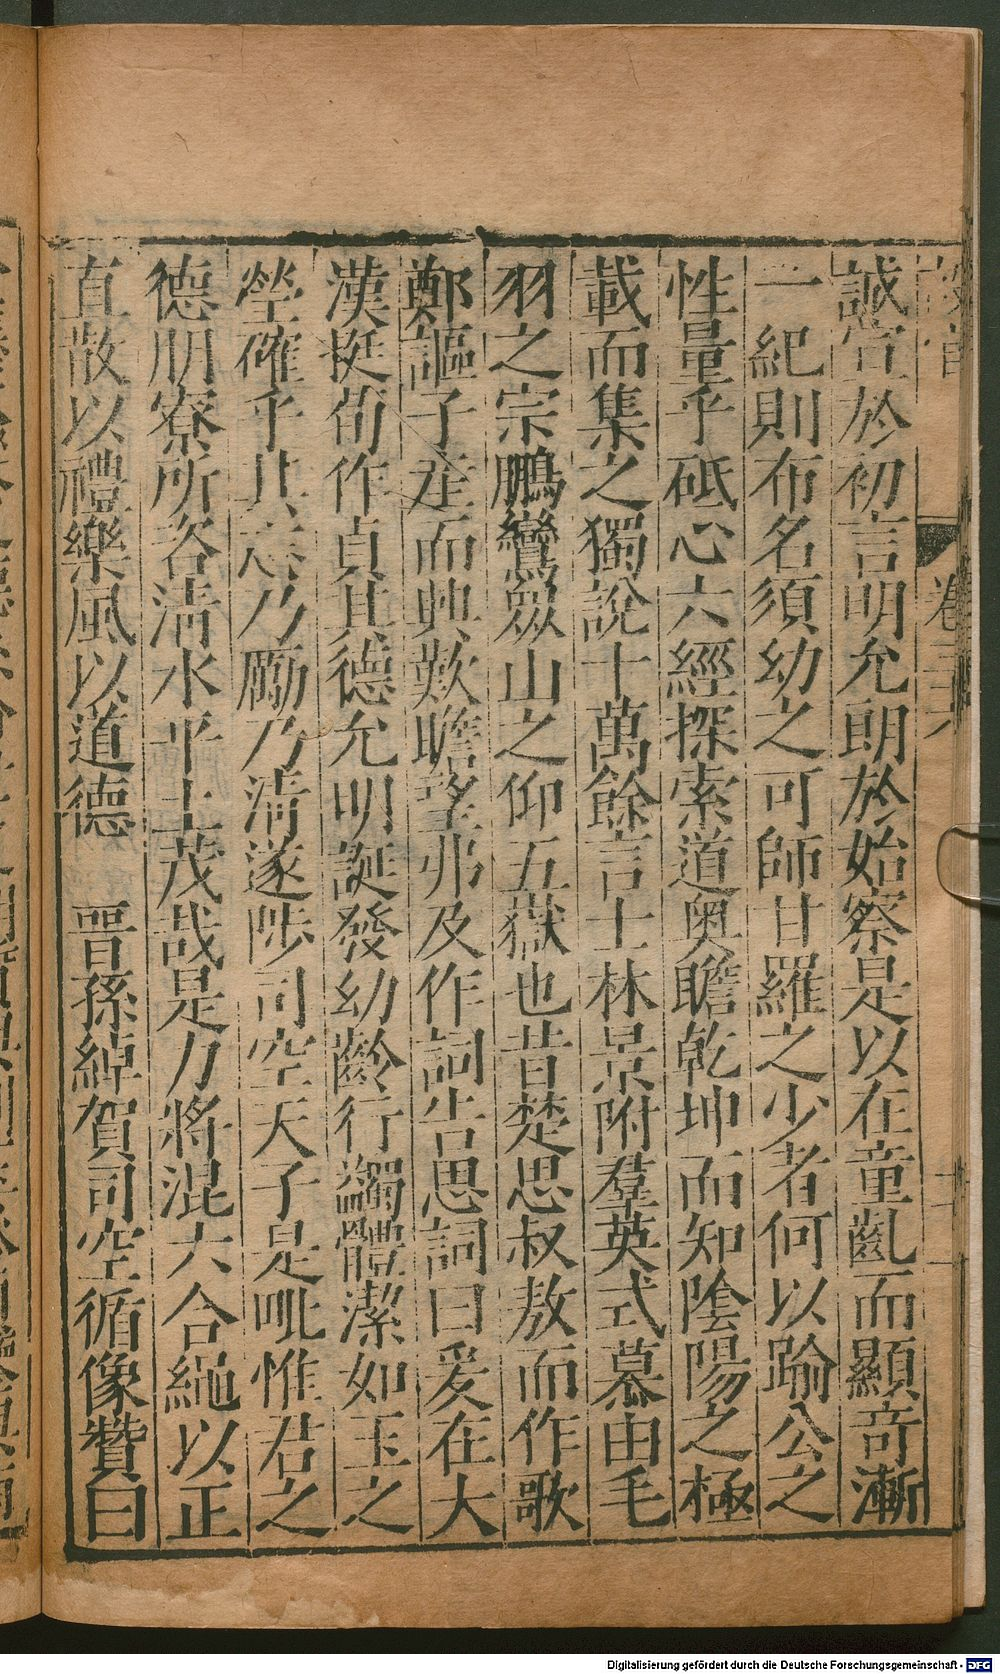 誠宣於初言明允朗於始察是以在童齓而顯奇漸
一紀則布名須幼之可師甘羅之少者何以踰公之
性量乎砥心六經探索道奧瞻乾坤而知陰陽之極
載而集之獨說十萬餘言士林景附羣英式慕由毛
羽之宗鵬鸞眾山之仰五嶽也昔楚思叔敖而作歌
鄭謳子產而興歎瞻望弗及作詞告思詞曰爰在大
漢挺荀作貞且德允明誕發幼齡行蠲體潔如玉之
瑩確乎其志乃勵乃清遂陟司空天子是毗惟君之
德朋寮所咨清水平土茂哉是力將混六合繩以正
直敢以禮樂風以道德 晉孫綽賀司空循像贊曰
卷
Digitalisierung gefördert durch die Deutsche Forschungsgemeinschaft - DFG